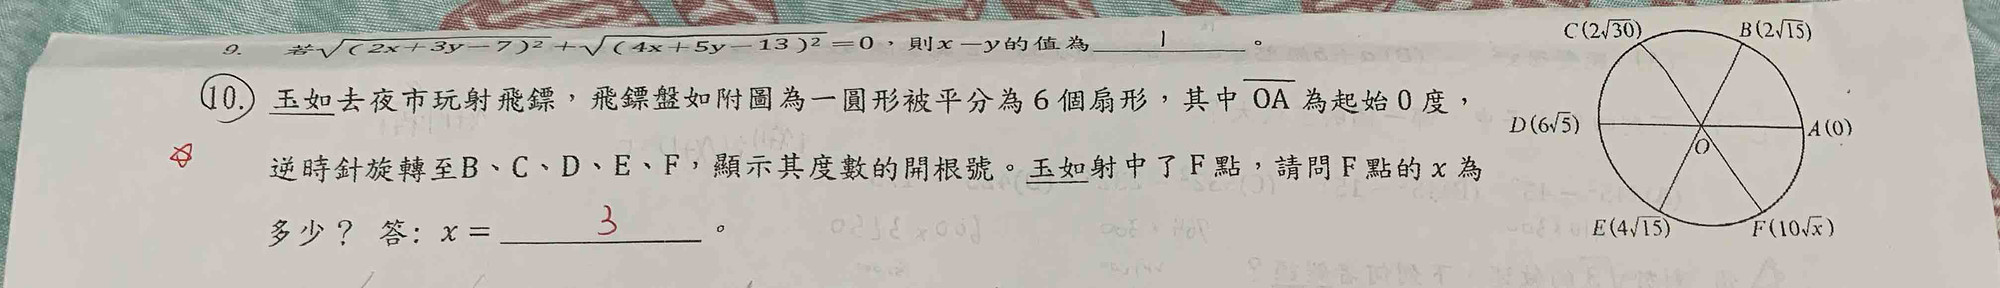 9. 若√(2x+3y−7)² + √(4x+5y−13)² = 0，則x−y的值為 1 。
10. 玉如去夜市玩射飛鏢，飛鏢盤如附圖為一圓形被平分為6個扇形，其中OA為起始0度，
逆時針旋轉至B、C、D、E、F，顯示其度數的開根號。玉如射中了F點，請問F點的x為
多少？ 答: x = 3 。
C(2√30) B(2√15)
D(6√5) A(0)
O
E(4√15) F(10√x)